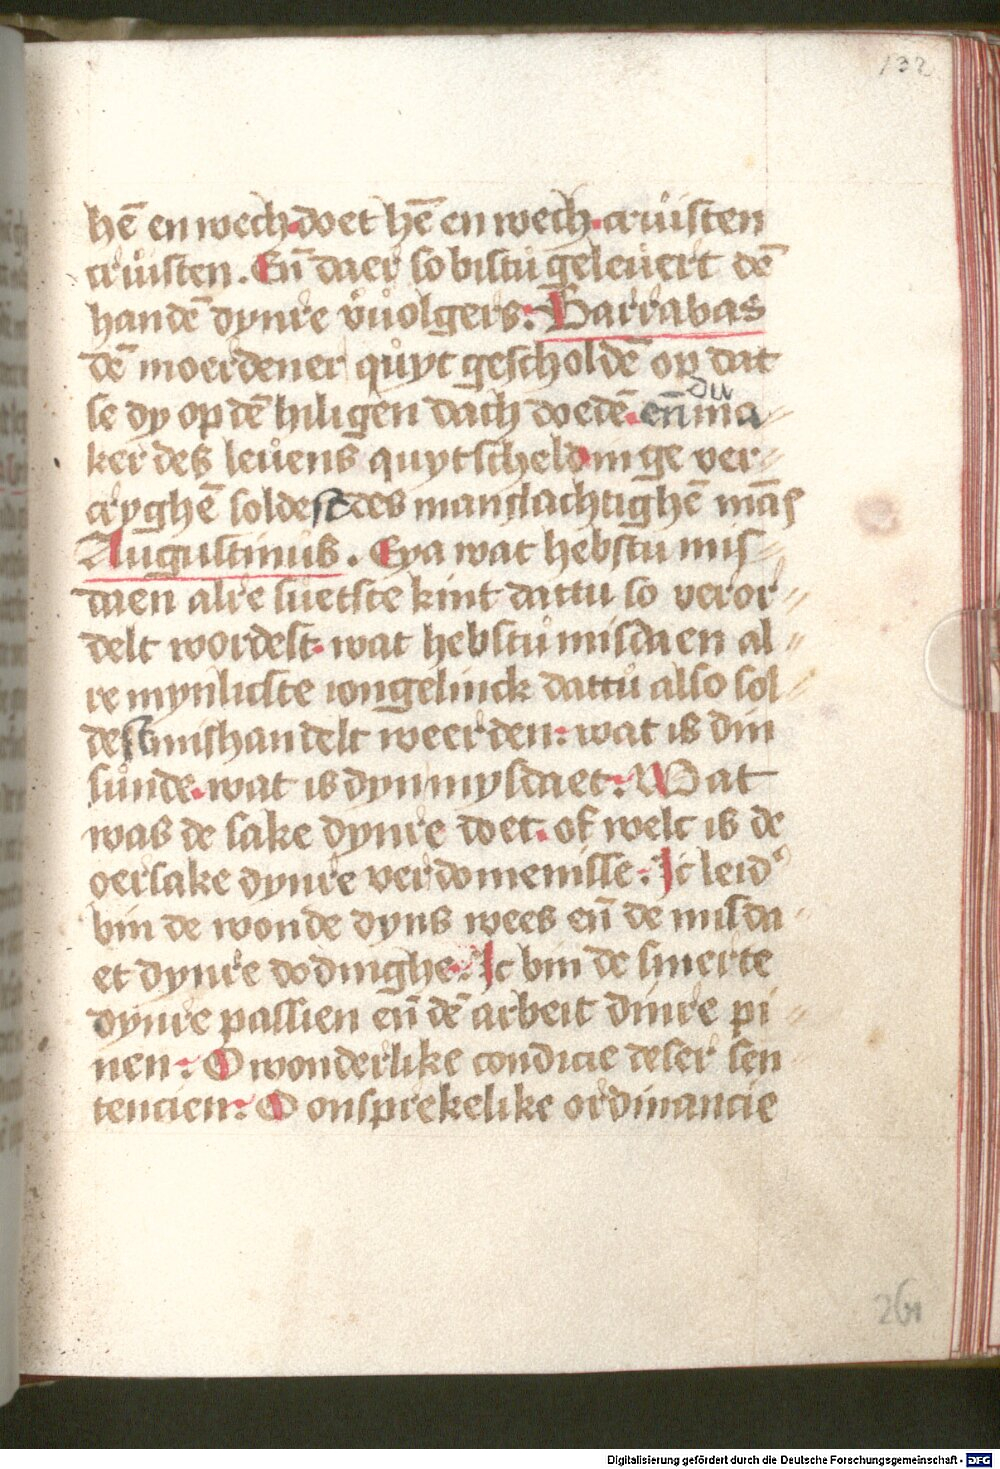 132
hē en wech. doet hē en wech. crůisten
crůisten. Eñ daer so bistu geleuert dē
handē dynre vůolgers: Barrabas
dē moerdener qůyt gescholdē op dat
du
se dy op dē hiligen dach doedē. eñ ma//
ker des leuens quytscheldinge ver//
cryghē soldest des manslachtighē mās
Augustinus. Eya wat hebstu mis//
daen alre suetste kint dattu so veror//
delt wordest. wat hebstů misdaen al//
re mynlicste iongelinck dattů also sol//
dest mishandelt weerden: wat is din
sůnde. wat is dyn mysdaet: Wat
was de sake dynre doet. of welc is de
oersake dynre verdomenisse: Ic leid'
bin de wonde dyns wees eñ de misda//
et dynre dodinghe: Ic bin de smerte
dynre passien eñ dē arbeit dinre pi//
nen: O wonderlike condicie deser sen
tencien: O onsprekelike ordinancie
261
Digitalisierung gefördert durch die Deutsche Forschungsgemeinschaft - DFG